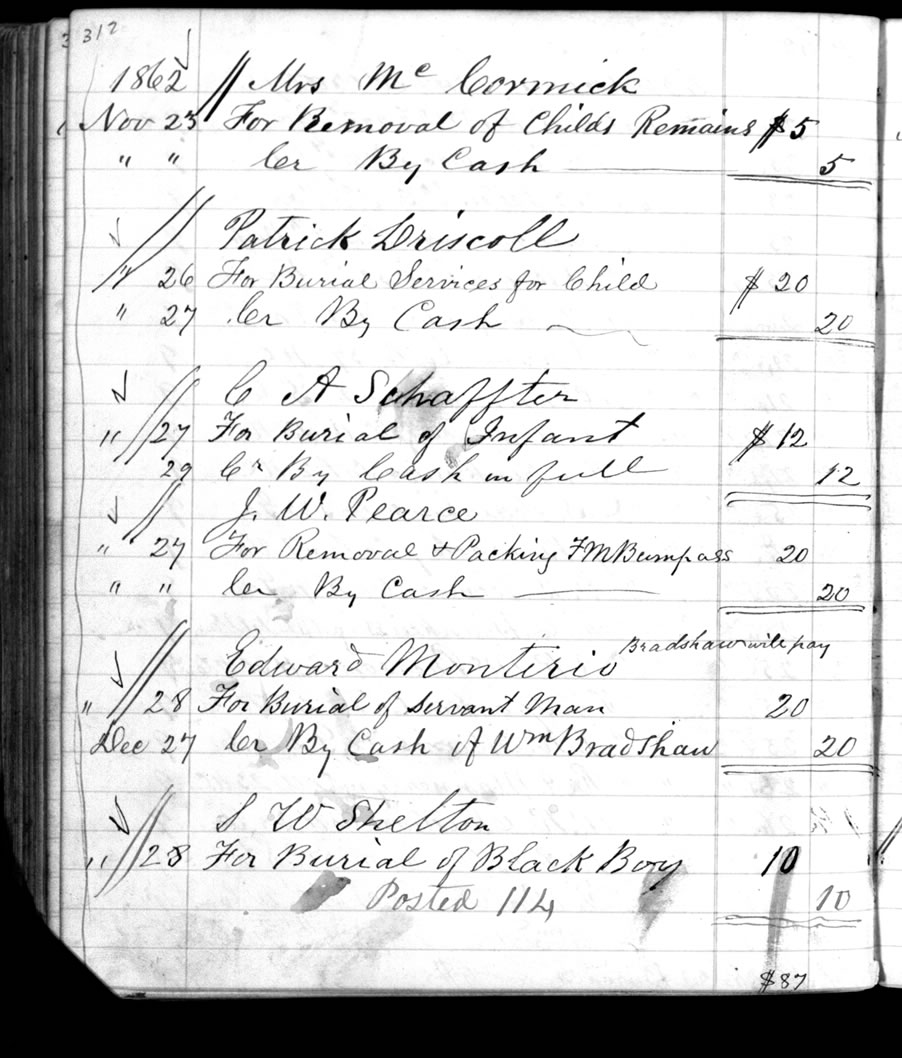 312
1862 Mrs Mc Cormick
Nov 23 For Removal of Childs Remains $5
" " Cr By Cash 5
Patrick Driscoll
" 26 For Burial Services for Child $20
" 27 Cr By Cash 20
C A Schaffter
" 27 For Burial of Infant $12
29 Cr By Cash in full 12
J. W. Pearce
" 27 For Removal & Packing F M Bumpass 20
" " Cr By Cash 20
Edward Monterio Bradshaw will pay
" 28 For Burial of Servant Man 20
Dec 27 Cr By Cash of Wm Bradshaw 20
S W Shelton
" 28 For Burial of Black Boy 10
Posted 114 10
$87